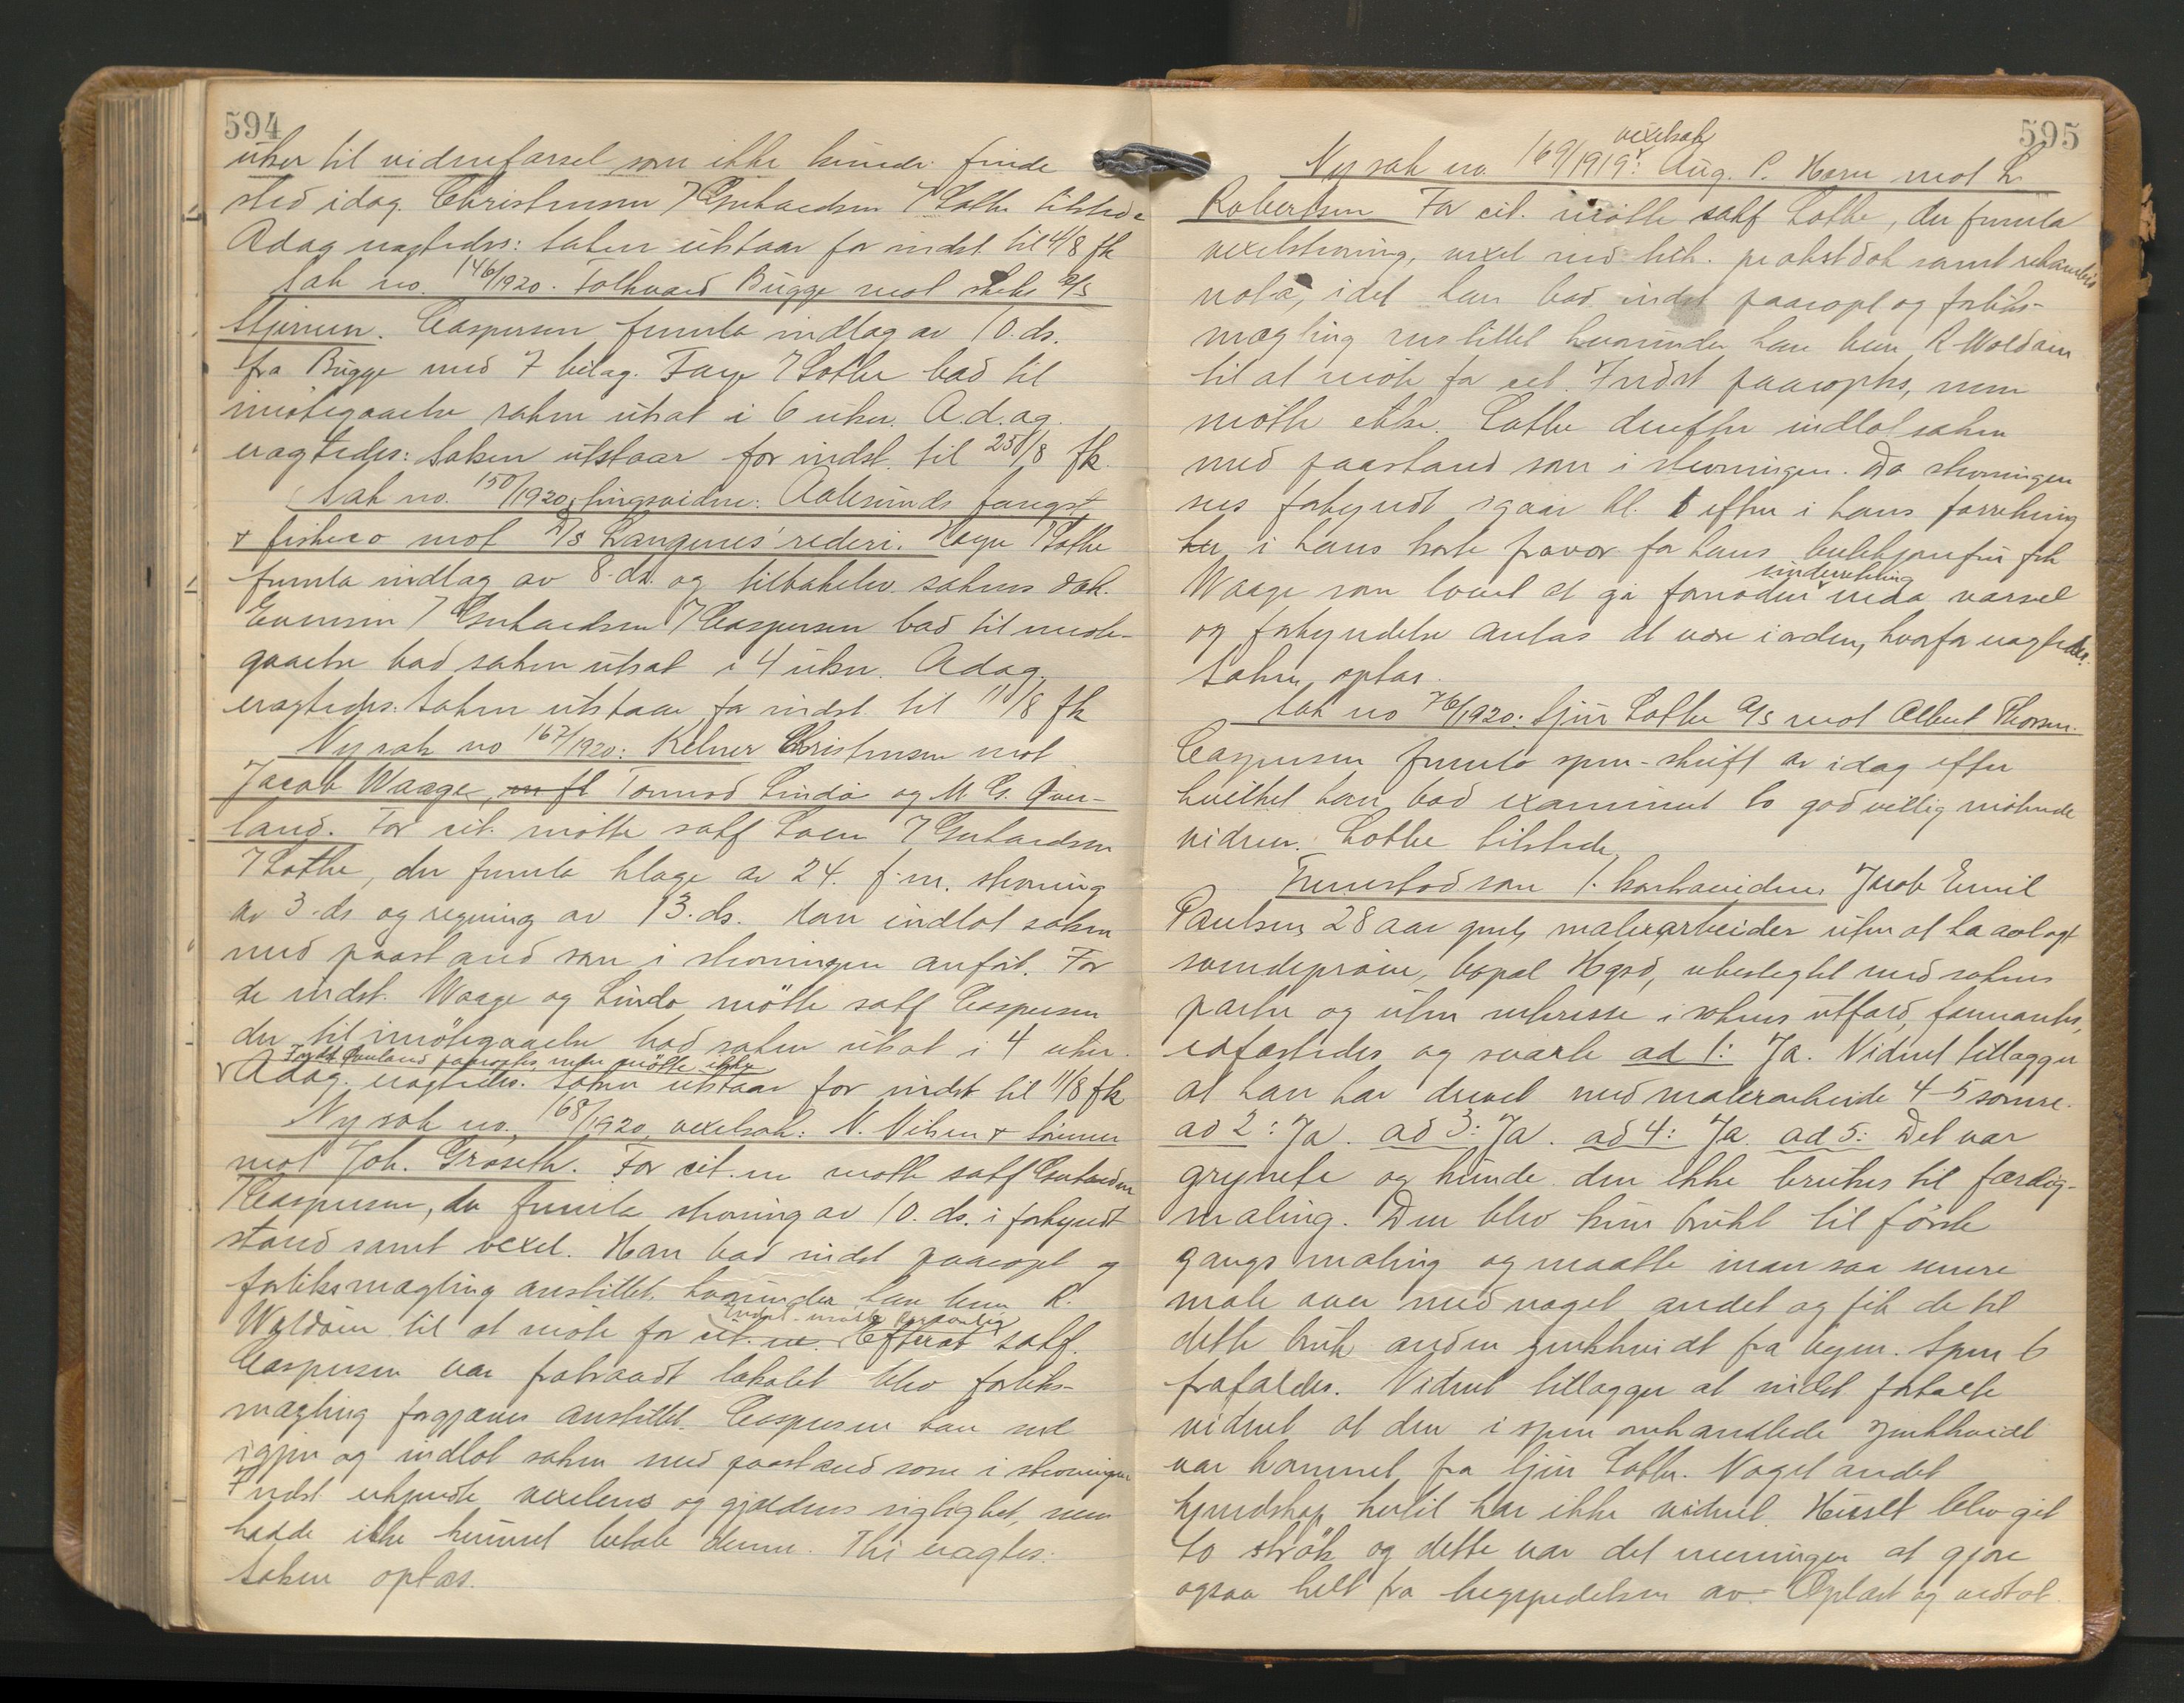 594
uker til vidneførsel som ikke kunde finde
sted idag. Christensen / Gerhardsen / Lothe tilstede
Adag eragtedes: Saken utstaar for indst. til 4/8 fk
Sak no. 146/1920. Folkvard Bugge mot a/s
Stjernen. Caspersen fremla indlæg av 10. ds.
fra Bugge med 7 bilag. / Lothe bad til
imøtegaaelse saken utsat i 6 uker. A.d.ag.
eragtedes: Saken utstaar for indst. til 25/8 fk.
Sak no. 150/1920, tingsvidne: Aalesunds fangst
& fiskeco mot D/S Langenes' rederi. / Lothe
fremla indlæg av 8. ds. og tilbakelev. sakens dok.
Evensen / Gerhardsen / Caspersen bad til imøte-
gaaelse bad saken utsat i 4 uker. Adag.
eragtedes: Saken utstaar for indst. til 11/8 fk
Ny sak no 167/1920: Kelner Christensen mot
Jacob Waage, m fl Tormod Lindø og M. G. Over-
land. For cit. møtte sakf Loen / Gerhardsen
/ Lothe, der fremla klage av 24. f.m. stevning
av 3. ds og regning av 13. ds. Han indlot saken
med paastand som i stevningen anført. For
de indst. Waage og Lindø møtte sakf Caspersen
der til imøtegaaelse bad saken utsat i 4 uker.
Indst Overland paaroptes, men møtte ikke
Adag. eragtedes: Saken utstaar for indst til 11/8 fk
Ny sak no. 168/1920, vexelsak: N. Nilsen & Sønner
mot Joh. Grøseth. For cit.ne møtte sakf Gerhardsen
/ Caspersen, der fremla stevning av 10. ds. i forkyndt
stand samt vexel. Han bad indst paaropt og
forliksmægling anstillet, hvorunder han bem. R.
Indst. møtte personlig
Waldøien til at møte for cit.ne. Efterat sakf.
Caspersen var fratraadt lokalet blev forliks-
mægling forgjæves anstillet. Caspersen kom ind
igjen og indlot saken med paastand som i stevningen
Indst erkjendte vexelens og gjældens rigtighet, men
hadde ikke kunnet betale denne. Thi eragtes:
Saken optas.
595
vexelsak
Ny sak no. 169/1919: Aug. P. Horn mot L.
Robertsen For cit. møtte sakf Lothe, der fremla
vexelstevning, vexel med tilh. protestdok samt rekambio
nota, idet han bad indst paaropt og forliks-
mægling anstillet hvorunder han bem R Waldøien
til at møte for cit. Indst paaroptes, men
møtte ikke. Lothe derefter indlot saken
med paastand som i stevningen. Da stevningen
sees forkyndt igaar kl. 1 efter i hans forretning
her, i hans korte fravær for hans butikjomfru frk
underretning
Waage som lovet at gi fornøden meda varsel
og forkyndelse antas at være i orden, hvorfor eragtedes:
Saken optas.
Sak no 76/1920: Sjur Lothe a/s mot Albert Thorsen.
Caspersen fremla spm-skrift av idag efter
hvilket han bad examinert to godvillig møtende
vidner. Lothe tilstede.
Fremstod som 1. kontravidne, Jacob Emil
Paulsen, 28 aar gml, malerarbeider uten at ha avlagt
svendeprøve, bopæl Hgsd, ubeslegtet med sakens
parter og uten interesse i sakens utfald, formantes,
edfæstedes og svarte ad 1: Ja. Vidnet tillægger
at han har drevet med malerarbeide 4-5 somre.
ad 2: Ja. ad 3: Ja. ad 4: Ja. ad 5: Det var
grynete og kunde den ikke brukes til færdig-
maling. Den blev kun brukt til første
gangs maling og maatte man saa senere
male over med noget andet og fik de til
dette bruk anden zinkhvidt fra byen. Spm 6
frafaldes. Vidnet tillægger at indst fortalte
vidnet at den i spm omhandlede zinkhvidt
var kommet fra Sjur Lothe. Noget andet
kjendskap hertil har ikke vidnet. Huset blev git
to strøk og dette var det meningen at gjøre
ogsaa helt fra begyndelsen av. Oplæst og vedtat.